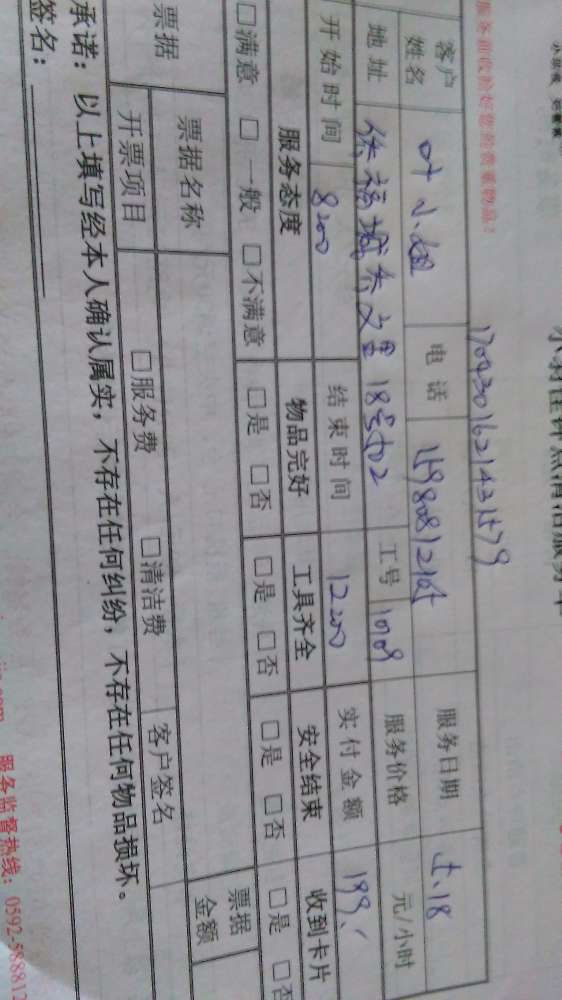 小羽佳钟点清洁服务单
服务前收捡好您的贵重物品!
1704301621431579
客户姓名 叶小姐 电话 服务日期 5.18
地址 18号502 工号 1709 服务价格 元/小时
开始时间 8:00 结束时间 12:00 实付金额 199.
服务态度 物品完好 工具齐全 安全结束 收到卡片
□满意 □一般 □不满意 □是 □否 □是 □否 □是 □否 □是 □否
票据 票据名称 票据金额
开票项目 □服务费 □清洁费 客户签名
承诺:以上填写经本人确认属实,不存在任何纠纷,不存在任何物品损坏。
签名:
服务监督热线:0592-588812